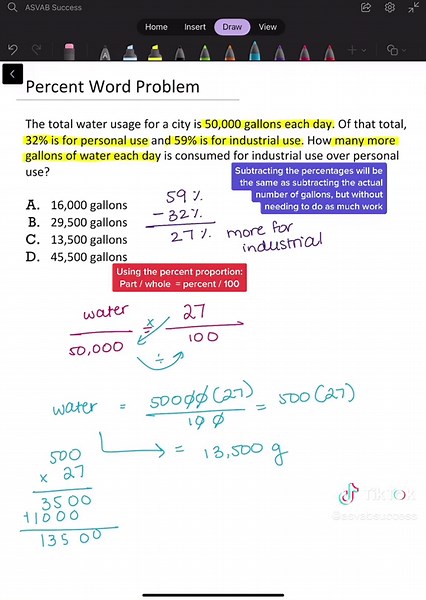 ASVAB Success
Home Insert Draw View
Percent Word Problem
The total water usage for a city is 50,000 gallons each day. Of that total,
32% is for personal use and 59% is for industrial use. How many more
gallons of water each day is consumed for industrial use over personal
use?
Subtracting the percentages will be
the same as subtracting the actual
number of gallons, but without
needing to do as much work
A. 16,000 gallons
B. 29,500 gallons
C. 13,500 gallons
D. 45,500 gallons
59%
-32%
27% more for
industrial
Using the percent proportion:
Part / whole = percent / 100
water x 27
50,000 = 100
÷
water = 50000(27) = 500(27)
100
= 13,500 g
500
x 27
3500
+1000
13500
TikTok
@asvabsuccess